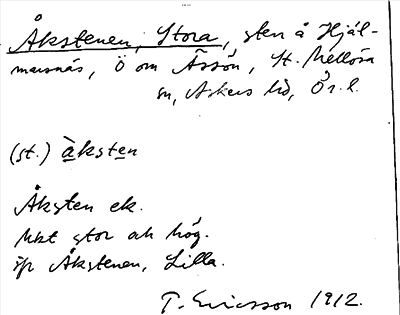 Åkstenen, Stora, sten å Hjäl-
marsnäs, Ö om Åssön, St. Mellösa
sn, Askers hd, Ör. l.
(st.) àksten
Åksten ek.
Mkt stor och hög.
jfr Åkstenen, Lilla.
T. Ericsson 1912.